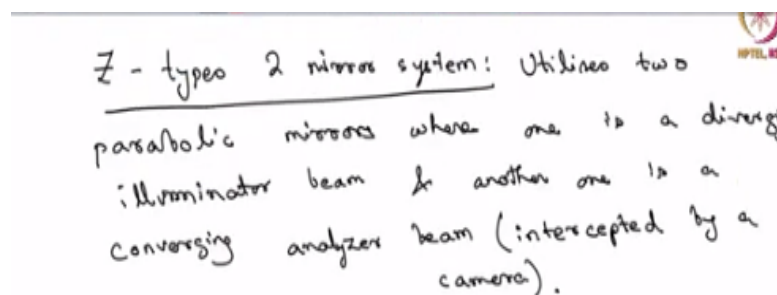 Z-types 2 mirror system: Utilises two
parabolic mirrors where one is a diverg
illuminator beam & another one is a
converging analyzer beam (intercepted by a
camera).
NPTEL